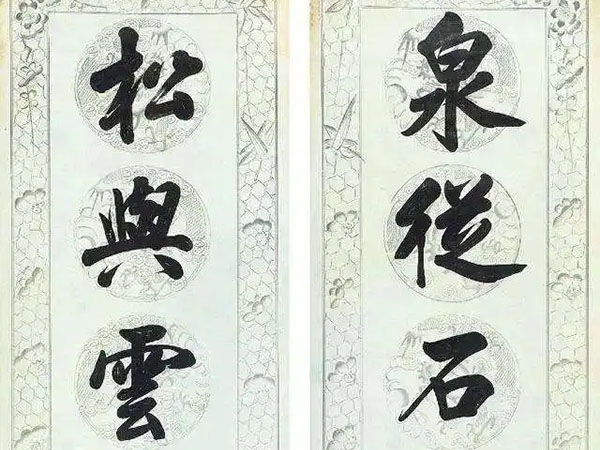 泉從石
松與雲